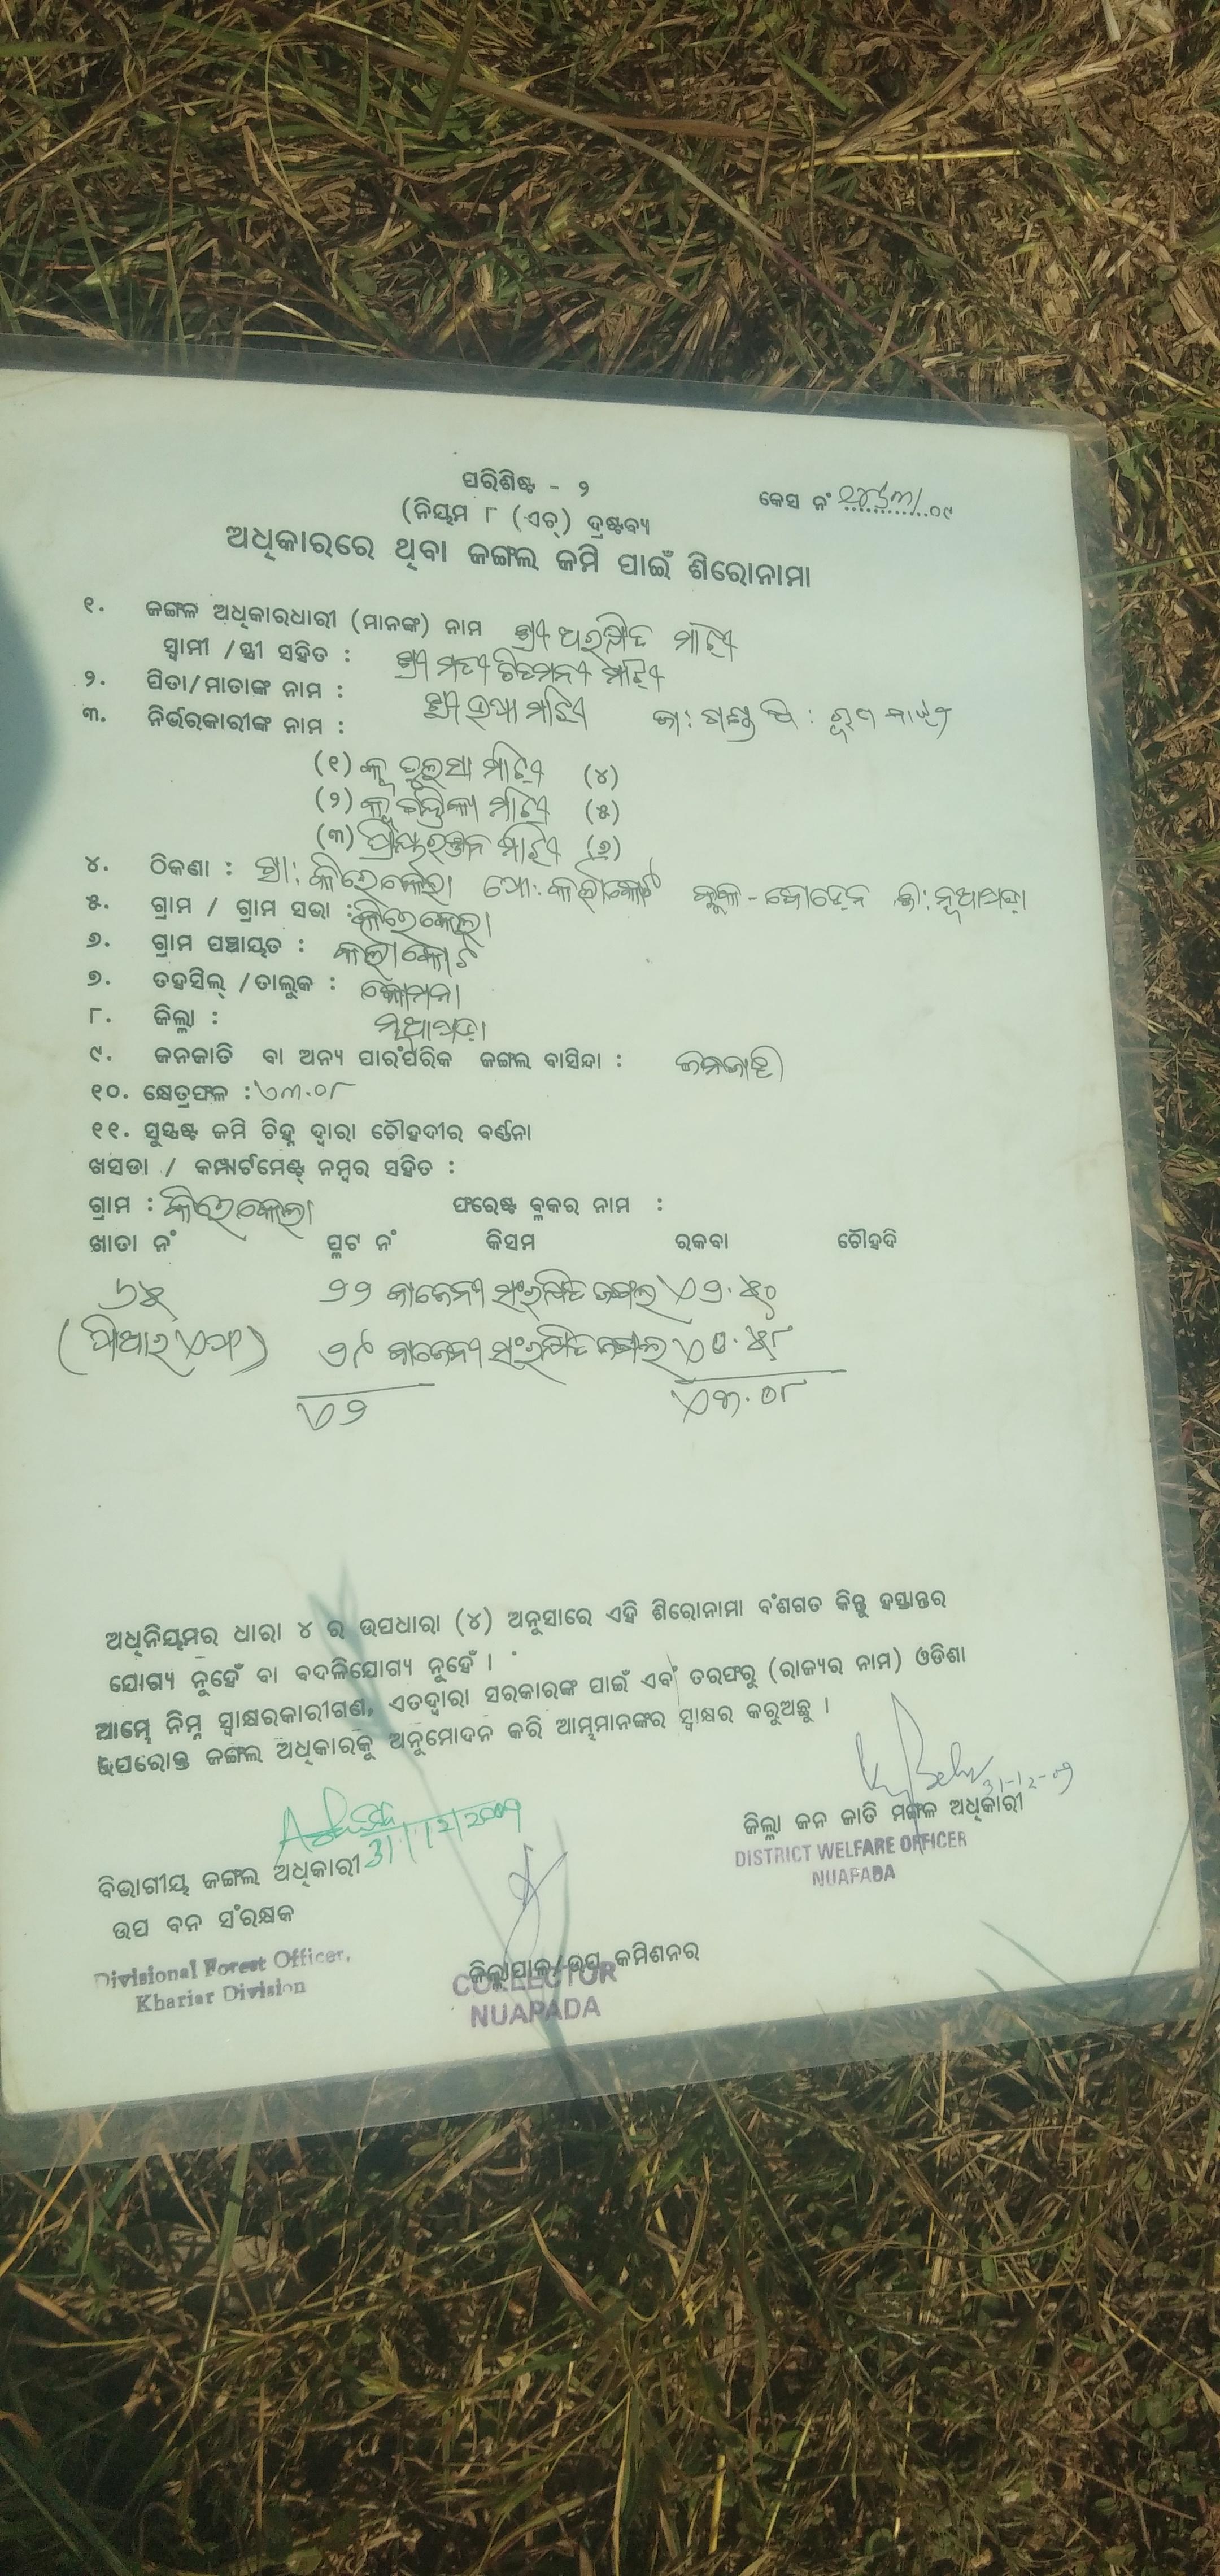 ପରିଶିଷ୍ଟ - ୨
କେସ ନଂ ............୦୯
(ନିୟମ ୮ (ଏଚ୍) ଦ୍ରଷ୍ଟବ୍ୟ
ଅଧିକାରରେ ଥିବା ଜଙ୍ଗଲ ଜମି ପାଇଁ ଶିରୋନାମା
୧. ଜଙ୍ଗଳ ଅଧିକାରଧାରୀ (ମାନଙ୍କ) ନାମ ଶ୍ରୀ ଅରକ୍ଷିତ ମାଝି
ସ୍ୱାମୀ /ସ୍ତ୍ରୀ ସହିତ : ଶ୍ରୀମତୀ ମାଝି
୨. ପିତା/ମାତାଙ୍କ ନାମ : ଶ୍ରୀ ମାଝି
୩. ନିର୍ଭରକାରୀଙ୍କ ନାମ :
(୧) ମାଝି (୪)
(୨) କୁ ଚନ୍ଦ୍ରିକା ମାଝି (୫)
(୩) ମାଝି (୬)
୪. ଠିକଣା : ସା: କିରେକେଲା ପୋ: କଲାକୋଟ ବ୍ଲକ - ଜି: ନୂଆପଡ଼ା
୫. ଗ୍ରାମ / ଗ୍ରାମ ସଭା : କିରେକେଲା
୬. ଗ୍ରାମ ପଞ୍ଚାୟତ : କଲାକୋଟ
୭. ତହସିଲ୍ /ତାଲୁକ : କୋମନା
୮. ଜିଲ୍ଲା : ନୂଆପଡ଼ା
୯. ଜନଜାତି ବା ଅନ୍ୟ ପାରଂପରିକ ଜଙ୍ଗଲ ବାସିନ୍ଦା : ଜନଜାତି
୧୦. କ୍ଷେତ୍ରଫଳ : ଏ୩.୦୮
୧୧. ସୁସ୍ପଷ୍ଟ ଜମି ଚିହ୍ନ ଦ୍ୱାରା ଚୌହଦୀର ବର୍ଣ୍ଣନା
ଖସଡା / କମ୍ପାର୍ଟମେଣ୍ଟ୍ ନମ୍ବର ସହିତ :
ଗ୍ରାମ : କିରେକେଲା ଫରେଷ୍ଟ ବ୍ଳକର ନାମ :
ଖାତା ନଂ ପ୍ଳଟ ନଂ କିସମ ରକବା ଚୌହଦି
୬୫ ୨୨ ସଂରକ୍ଷିତ ଜଙ୍ଗଲ ଏ୨.୫୦
(ପିଆରଏଫ) ସଂରକ୍ଷିତ ଜଙ୍ଗଲ ଏ୦.୫୮
୨ ଏ୩.୦୮
ଅଧିନିୟମର ଧାରା ୪ ର ଉପଧାରା (୪) ଅନୁସାରେ ଏହି ଶିରୋନାମା ବଂଶଗତ କିନ୍ତୁ ହସ୍ତାନ୍ତର
ଯୋଗ୍ୟ ନୁହେଁ ବା ବଦଳିଯୋଗ୍ୟ ନୁହେଁ ।
ଆମ୍ଭେ ନିମ୍ନ ସ୍ୱାକ୍ଷରକାରୀଗଣ, ଏତଦ୍ୱାରା ସରକାରଙ୍କ ପାଇଁ ଏବଂ ତରଫରୁ (ରାଜ୍ୟର ନାମ) ଓଡିଶା
ଉପରୋକ୍ତ ଜଙ୍ଗଲ ଅଧିକାରକୁ ଅନୁମୋଦନ କରି ଆମ୍ଭମାନଙ୍କର ସ୍ୱାକ୍ଷର କରୁଅଛୁ ।
31-12-09
31/12/2009
ଜିଲ୍ଲା ଜନ ଜାତି ମଙ୍ଗଳ ଅଧିକାରୀ
DISTRICT WELFARE OFFICER
NUAPADA
ବିଭାଗୀୟ ଜଙ୍ଗଲ ଅଧିକାରୀ
ଉପ ବନ ସଂରକ୍ଷକ
Divisional Forest Officer,
Khariar Division
ଜିଲ୍ଲାପାଳ/ଉପ କମିଶନର
COLLECTOR
NUAPADA